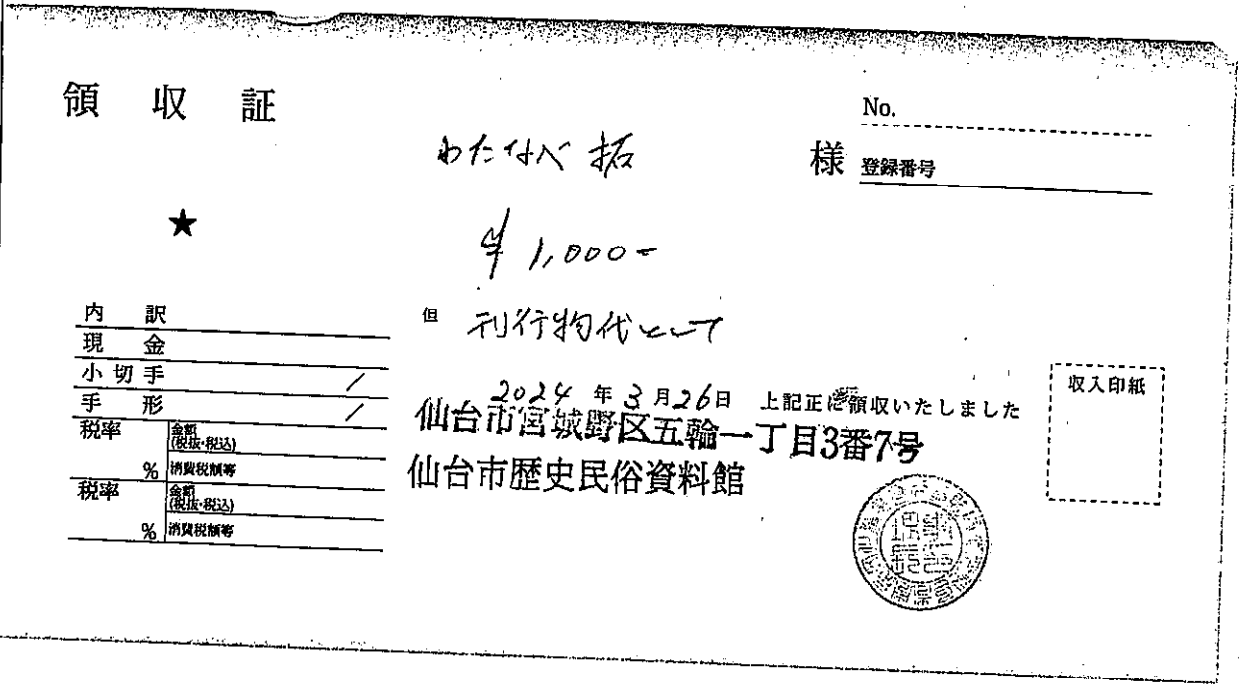 領 収 証
No.
わたなべ 拓 様
登録番号
★
¥ 1,000-
但 刊行物代として
内 訳
現 金
小切手 /
手 形 /
税率 金額(税抜・税込)
% 消費税額等
税率 金額(税抜・税込)
% 消費税額等
2024 年 3 月 26 日 上記正に領収いたしました
仙台市宮城野区五輪一丁目3番7号
仙台市歴史民俗資料館
収入印紙